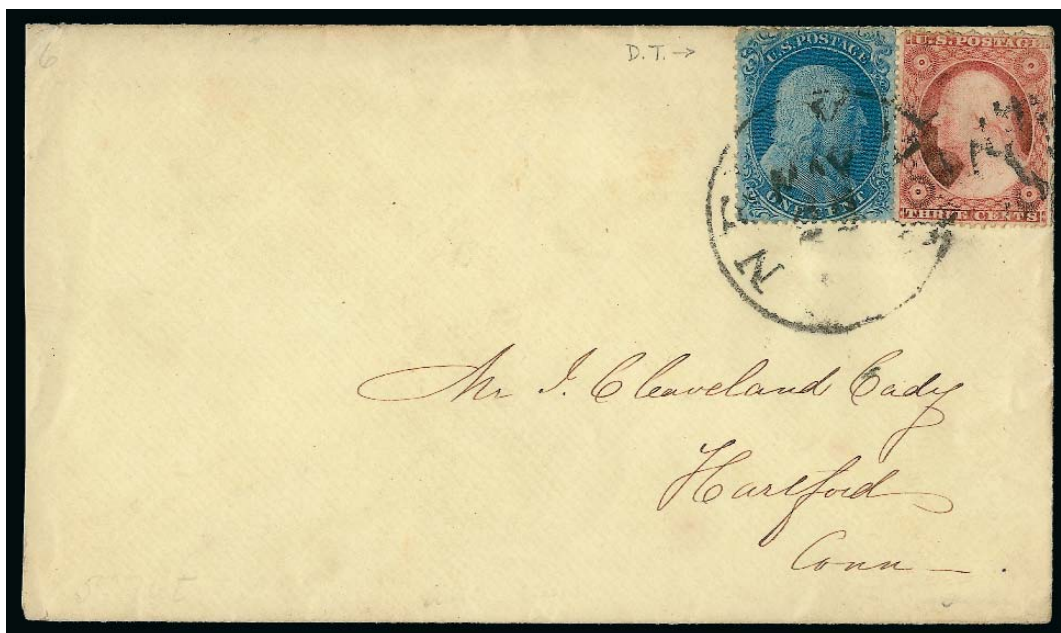 6
D.T. →
U.S. POSTAGE
ONE CENT
U.S. POSTAGE
THREE CENTS
MAY
Mr J. Cleaveland Cady
Hartford
Conn